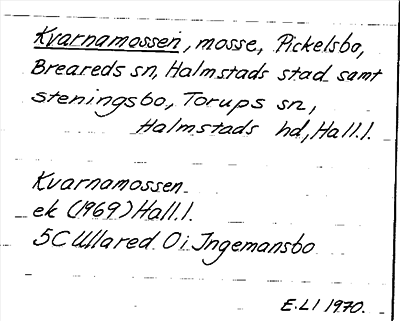 Kvarnamossen, mosse, Pickelsbo,
Breareds sn, Halmstads stad samt
steningsbo, Torups sn,
Halmstads hd, Hall.l.
Kvarnamossen
ek (1969) Hall.l.
5C Ullared O i Ingemansbo
E.LI 1970.